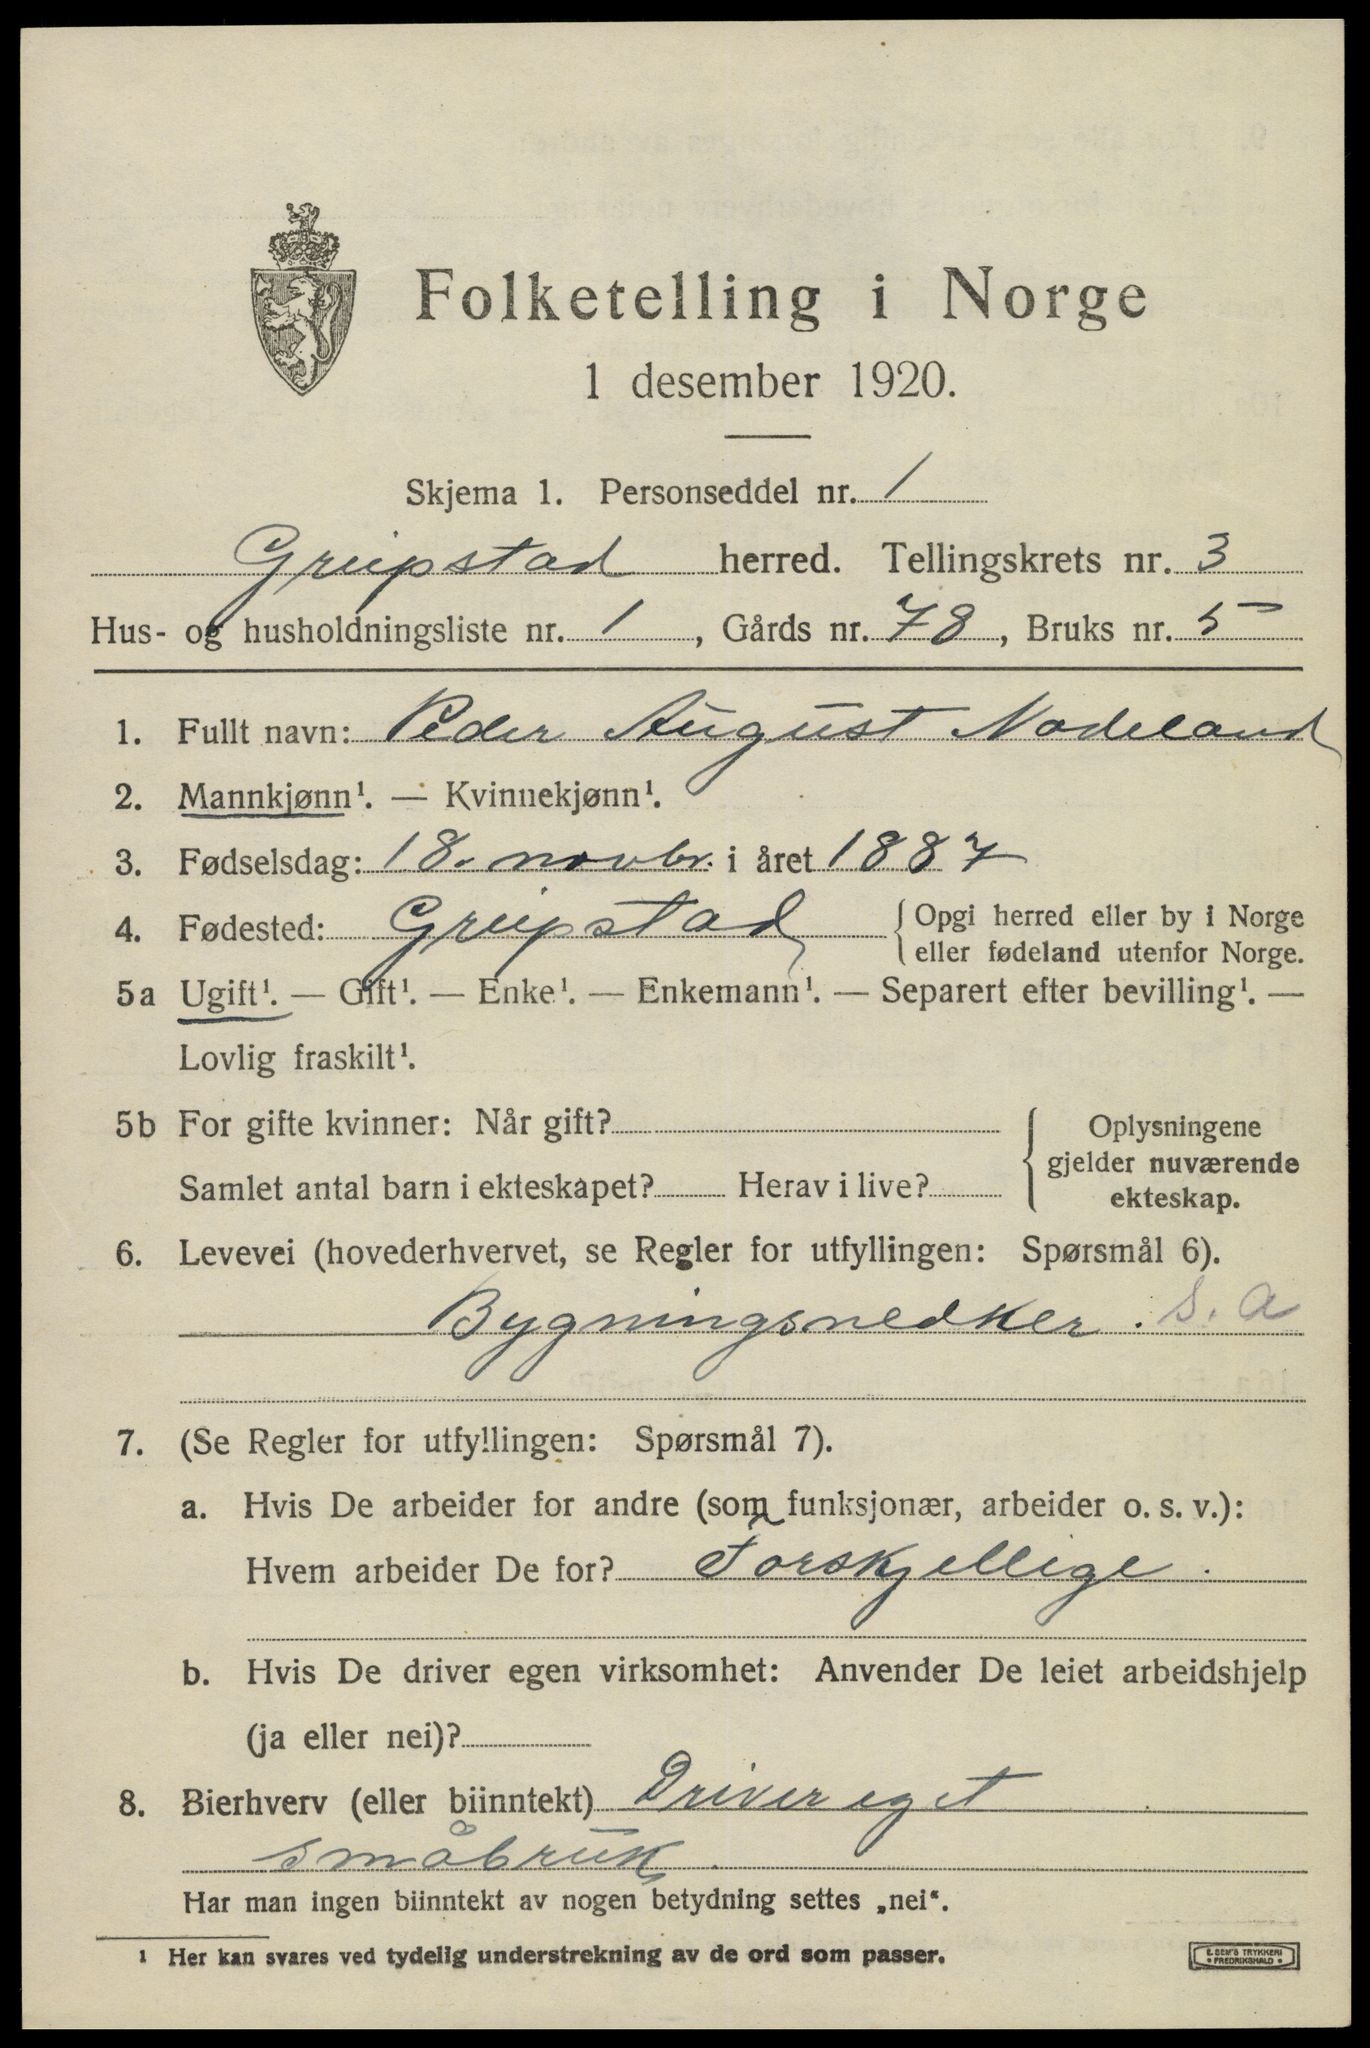 Folketelling i Norge
1 desember 1920.
Skjema 1. Personseddel nr. 1
Greipstad herred. Tellingskrets nr. 3
Hus- og husholdningsliste nr. 1, Gårds nr. 78, Bruks nr. 5
1. Fullt navn: Peder August Nodeland
2. Mannkjønn¹. — Kvinnekjønn¹.
3. Fødselsdag: 18. novbr. i året 1887
4. Fødested: Greipstad { Opgi herred eller by i Norge
eller fødeland utenfor Norge.
5a Ugift¹. — Gift¹. — Enke¹. — Enkemann¹. — Separert efter bevilling¹. —
Lovlig fraskilt¹.
5b For gifte kvinner: Når gift?
Samlet antal barn i ekteskapet? Herav i live?
{ Oplysningene
gjelder nuværende
ekteskap.
6. Levevei (hovederhvervet, se Regler for utfyllingen: Spørsmål 6).
Bygningsnedker. s. a
7. (Se Regler for utfyllingen: Spørsmål 7).
a. Hvis De arbeider for andre (som funksjonær, arbeider o. s. v.):
Hvem arbeider De for? Forskjellige.
b. Hvis De driver egen virksomhet: Anvender De leiet arbeidshjelp
(ja eller nei)?
8. Bierhverv (eller biinntekt) Driver eget
småbruk.
Har man ingen biinntekt av nogen betydning settes „nei“.
¹ Her kan svares ved tydelig understrekning av de ord som passer.
E. SEM'S TRYKKERI
• FREDRIKSHALD •